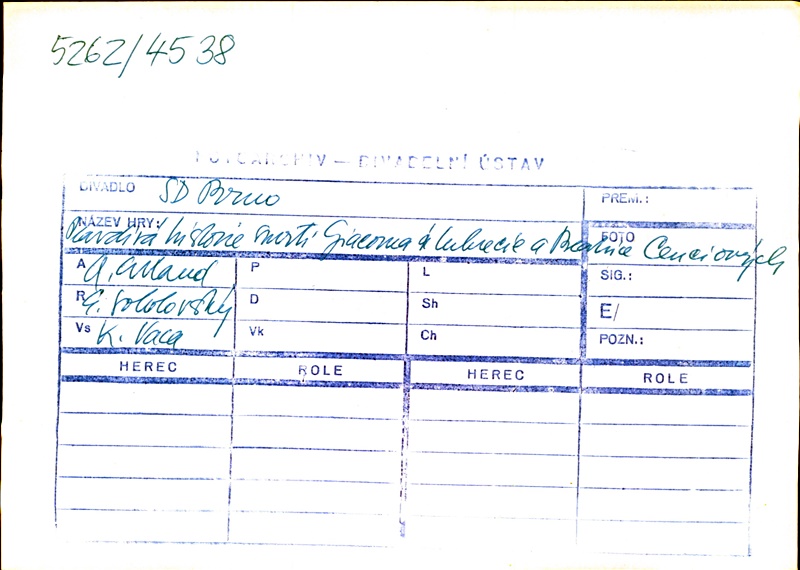 5262/4538
FOTOARCHIV — DIVADELNÍ ÚSTAV
DIVADLO SD Brno PREM.:
NÁZEV HRY: Pravdivá historie smrti Giacoma Lukrecie a Beatrice Cenciových FOTO
A A. P L SIG.:
R E. Sokolovský D Sh E/
Vs K. Vaca Vk Ch POZN.:
HEREC ROLE HEREC ROLE